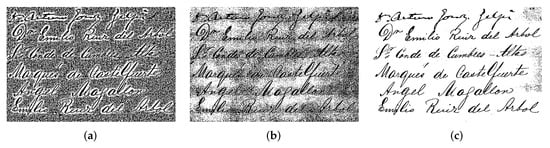 D. Arturo Gomez Zelpi
Dn Emilio Ruiz del Arbol
Sr Conde de Cumbres - Altas
Marqués de Castelfuerte
Angel Magallon
Emilio Ruiz del Arbol
D. Arturo Gomez Zelpi
Dn Emilio Ruiz del Arbol
Sr Conde de Cumbres - Altas
Marqués de Castelfuerte
Angel Magallon
Emilio Ruiz del Arbol
Arturo Gomez
Dn Emilio Ruiz del Arbol
Sr Conde de Cumbres - Altas
Marqués de Castelfuerte
Angel Magallon
Emilio Ruiz del Arbol
(a)
(b)
(c)